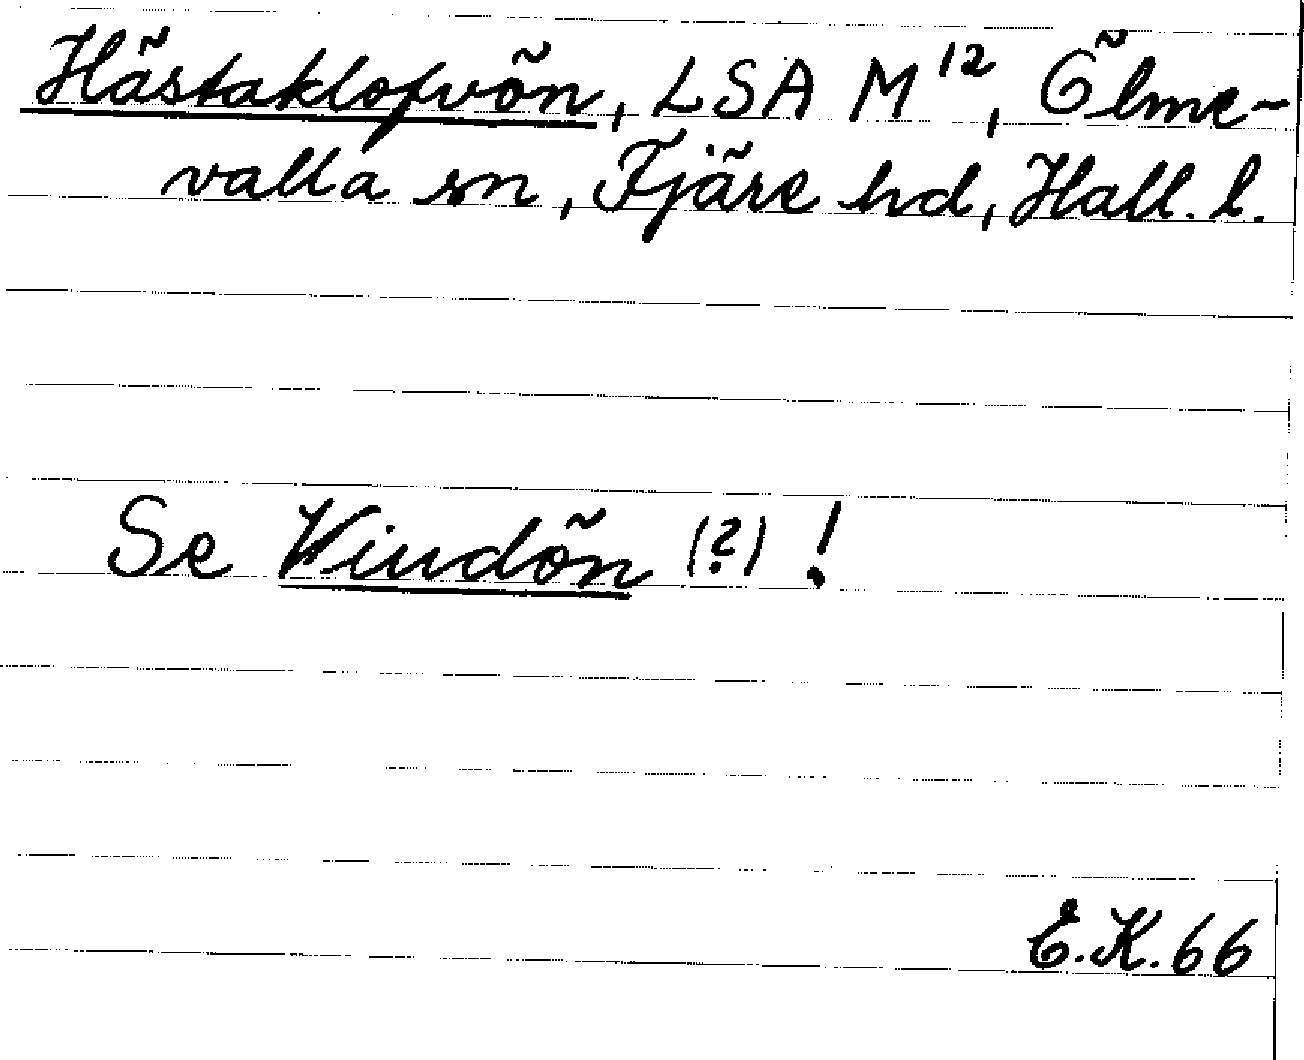 Hästaklofvön, LSA M¹², Ölme-
valla sn, Fjäre hd, Hall. l.
Se Vindön (?) !
E.K. 66